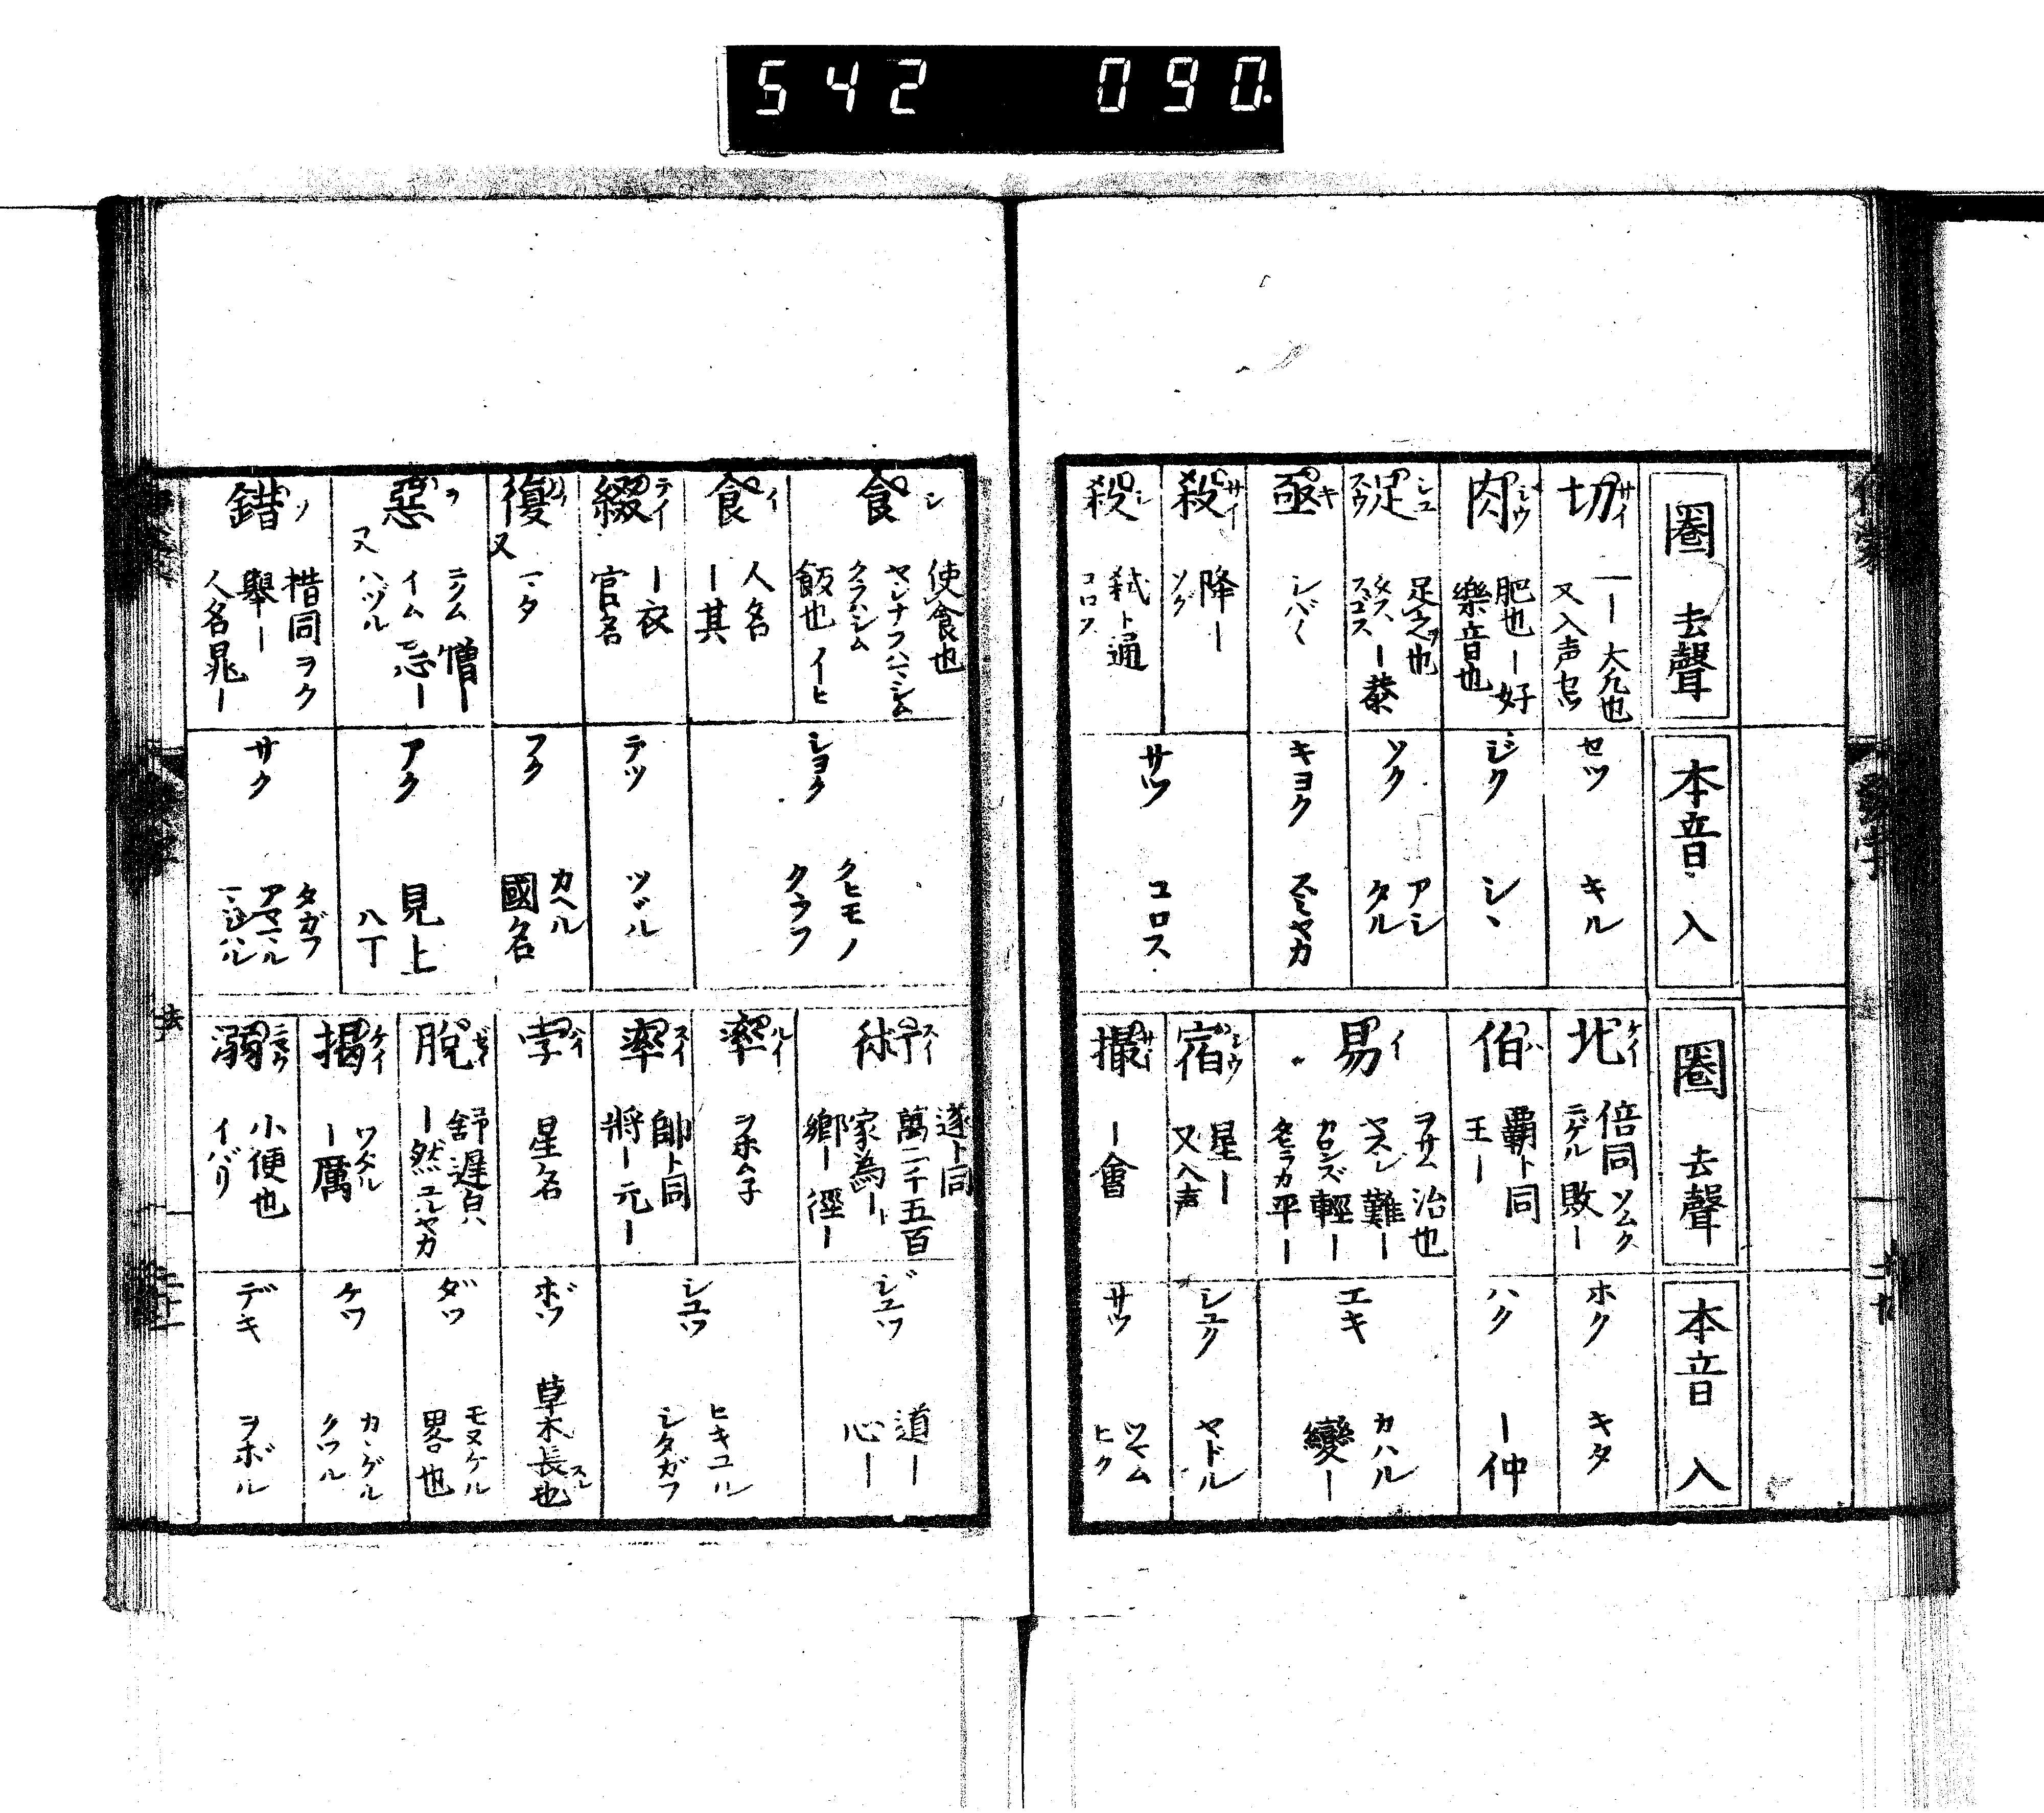 542 090.
圏 去聲
本音 入
切 サイ
一ー 大凡也
又入声セツ
セツ
キル
肉 ジウ
肥也ー好
樂音也
ジク
シヽ
足 シユ スウ
足之也
ー恭
ソク
アシ
タル
亟 キ
シバ〱
キヨク
スミヤカ
殺 サイ
降ー
ソグ
殺 シ
弑ト通
コロス
サツ
コロス
圏 去聲
本音 入
北 ケイ
倍同 ソムク
ニゲル 敗ー
ホク
キタ
伯 ハ
覇ト同
王ー
ハク
ー仲
易 イ
ヲサム 治也
ヤスシ 難ー
カロンズ 輕ー
タヒラカ 平ー
エキ
カハル
變ー
宿 シウ
星ー
又入声
シユク
ヤドル
撮 サイ
ー會
サツ
ツマム
ヒク
食 シ
使食也
ヤシナフハマシム
クラハシム
飯也 イヒ
食 イ
人名
ー其
シヨク
クヒモノ
クラフ
綴 テイ
ー衣
官名
テツ
ツヾル
復
又
マタ
フク
カヘル
國名
惡 ヲ
ニクム 憎ー
イム 忌ー
又ハヅル
アク
見上
八丁
錯 ソ
措同ヲク
舉ー
人名晁ー
サク
タガフ
アヤマル
マジハル
術 スイ
遂ト同
萬二千五百
家為ー
鄉ー徑ー
ジユツ
道ー
心ー
率 ルイ
率 スイ
帥ト同
將ー元ー
シユツ
ヒキユル
シタガフ
孛 ハイ
星名
ボツ
草木長也
脫
舒遲皃
ー然 ユルヤカ
ダツ
モヌケル
畧也
揭 ケイ
ワタル
ー厲
ケツ
カヽゲル
溺 ニヨウ
小便也
イバリ
デキ
ヲボル